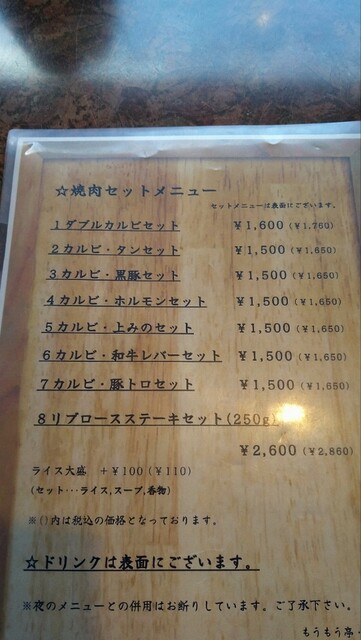 ☆焼肉セットメニュー
セットメニューは表面にございます。
1ダブルカルビセット ￥1,600(￥1,760)
2カルビ・タンセット ￥1,500(￥1,650)
3カルビ・黒豚セット ￥1,500(￥1,650)
4カルビ・ホルモンセット ￥1,500(￥1,650)
5カルビ・上みのセット ￥1,500(￥1,650)
6カルビ・和牛レバーセット ￥1,500(￥1,650)
7カルビ・豚トロセット ￥1,500(￥1,650)
8リブロースステーキセット(250g)
￥2,600(￥2,860)
ライス大盛 +￥100(￥110)
(セット･･･ライス,スープ,香物)
※()内は税込の価格となっております。
☆ドリンクは表面にございます。
※夜のメニューとの併用はお断りしています。ご了承下さい。
もうもう亭